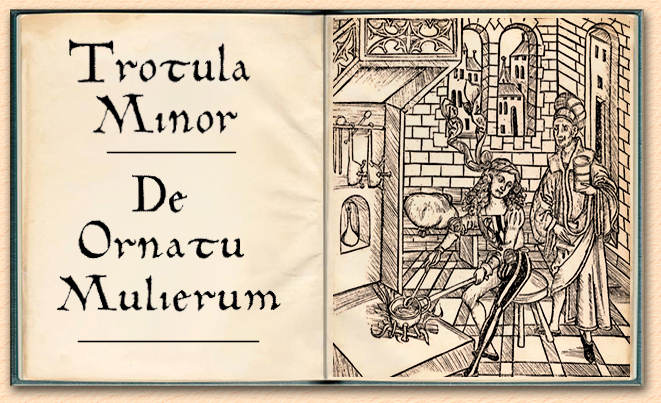 Trotula
Minor
De
Ornatu
Mulierum